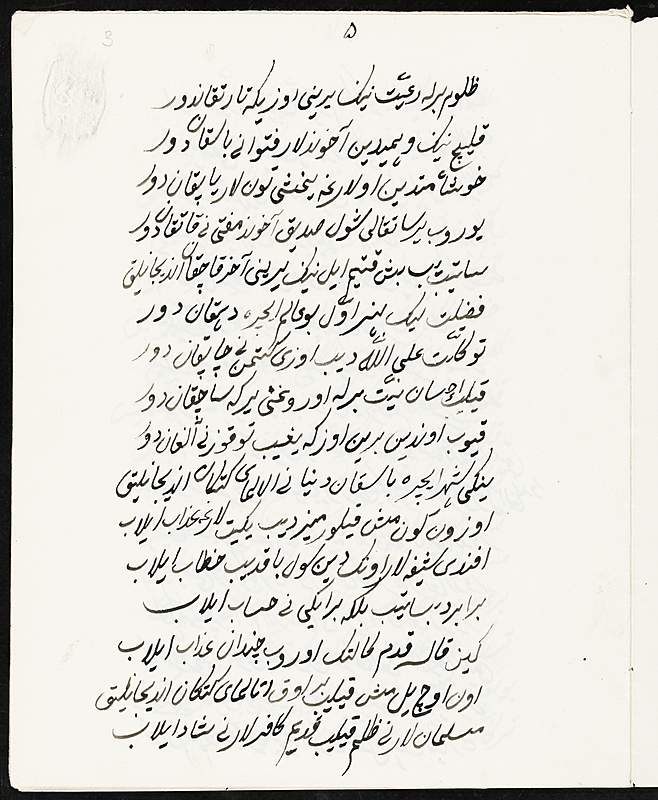 ۵
ظلوم برله رعیت نینک یرینی اوزیکه تارتقاندور
قلیچ نینک وهمیدین آخوندلار فتوانی باسقان دور
خوشامتدین اولارغه یخشی تون لار یاپقان دور
یوروب یرسا تقالی شول صدیق آخوند مفتی نی قاتقان دور
ساتیب بش قتیم ایل نینک یرینی آخر قاچقان اندیجانلیق
فضیلت لیک بو عالم دهقان دور
توکلت علی الله دیب اوزی کتمن نی چاپقان دور
قیلیب احسان نیت برله اوروغنی یرکه ساچقان دور
قیوب اوندین برین اوزکه یغیب توقوزنی آلغان دور
ینکی شهر باسقان دنیا نی الالمای کتکان اندیجانلیق
اوزون کون مش قیلورمیز دیب یکیت لارغه عذاب ایلاب
افندی شیفه لار اونک دین کول باقدیب خطاب ایلاب
برابر دیب ساتیب بلکه بر ایکی نی حساب ایلاب
کین قالسه قدم کالتک اوروب چندان عذاب ایلاب
اون اوچ یل مش قیلیب بر اوق اتالمای کتکان اندیجانلیق
مسلمان لارنی ظلم قیلیب کافرلارنی شاد ایلاب